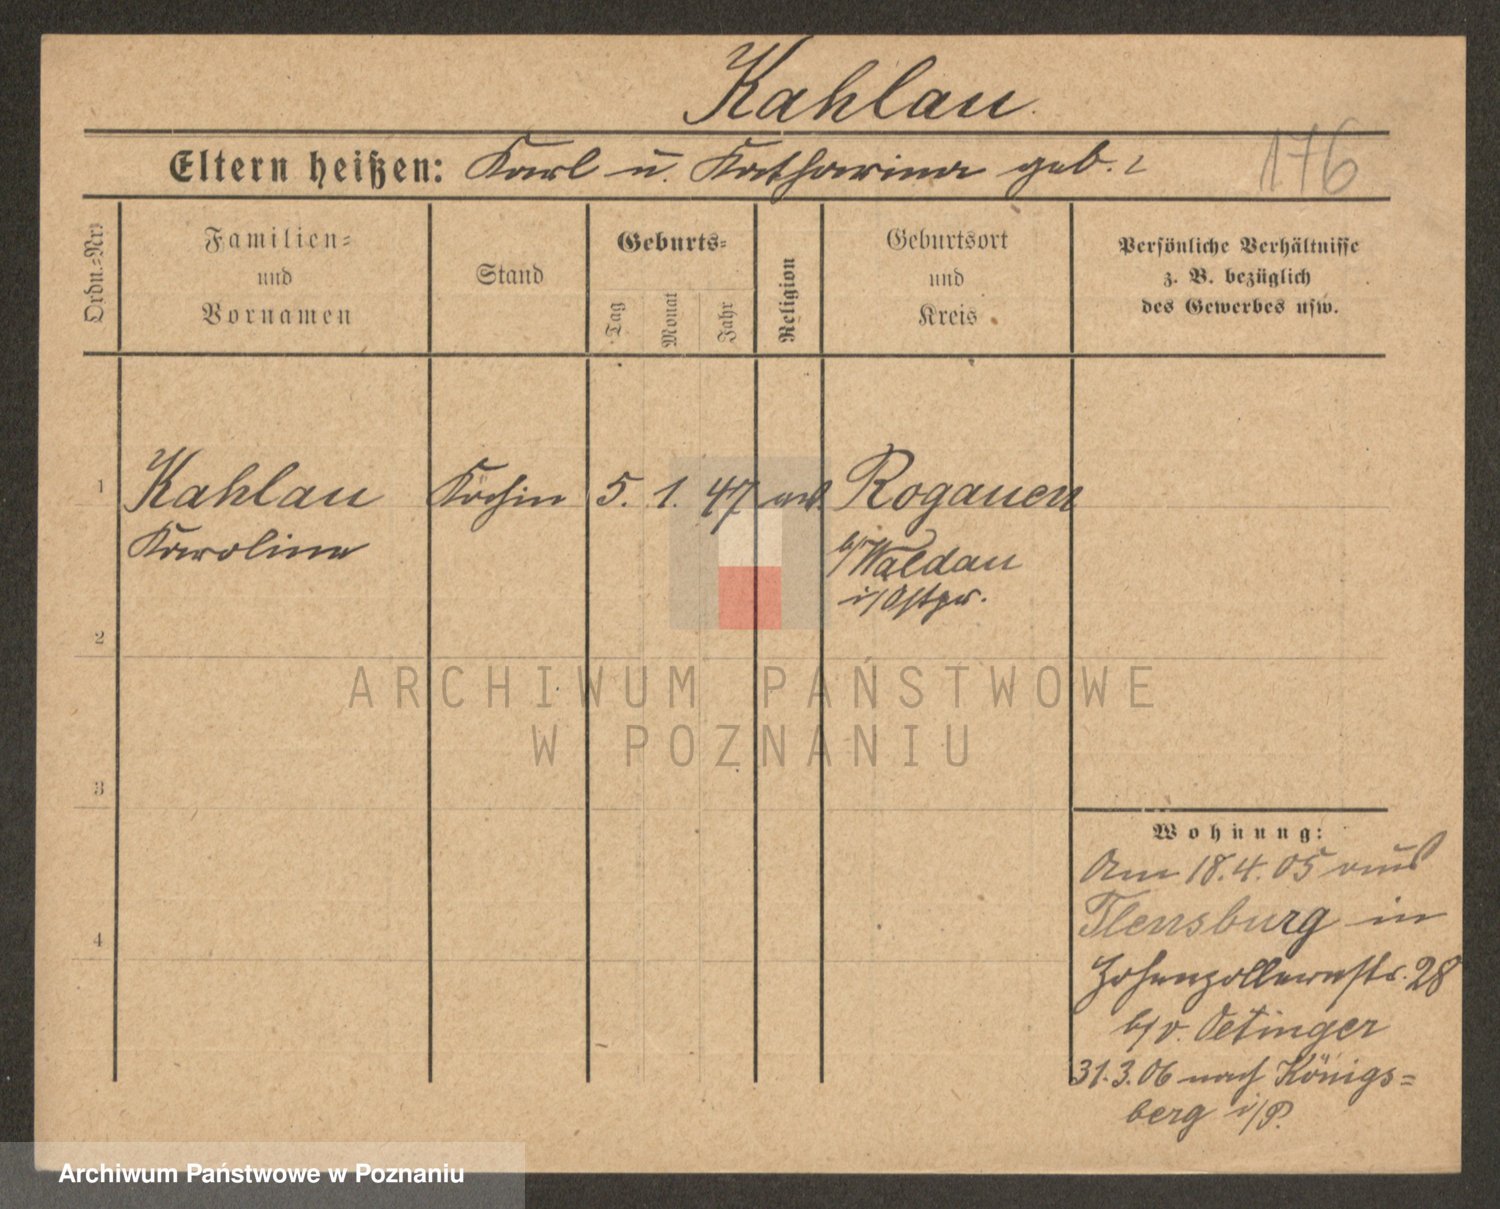 Kahlau.
Eltern heißen: Karl u. Katharina geb. ?
176
Ordn.-Nr.
Familien-
und
Vornamen
Stand
Geburts-
Tag
Monat
Jahr
Religion
Geburtsort
und
Kreis
Persönliche Verhältnisse
z. B. bezüglich
des Gewerbes usw.
1 Kahlau Köchin 5. 1. 47 Rogauen
Karoline b/Waldau
i/Ostpr.
2
3
4
Wohnung:
Am 18.4.05 aus
Flensburg in
Hohenzollernstr. 28
b/v. Oetinger
31.3.06 nach Königs=
berg i/P.
ARCHIWUM PAŃSTWOWE
W POZNANIU
Archiwum Państwowe w Poznaniu